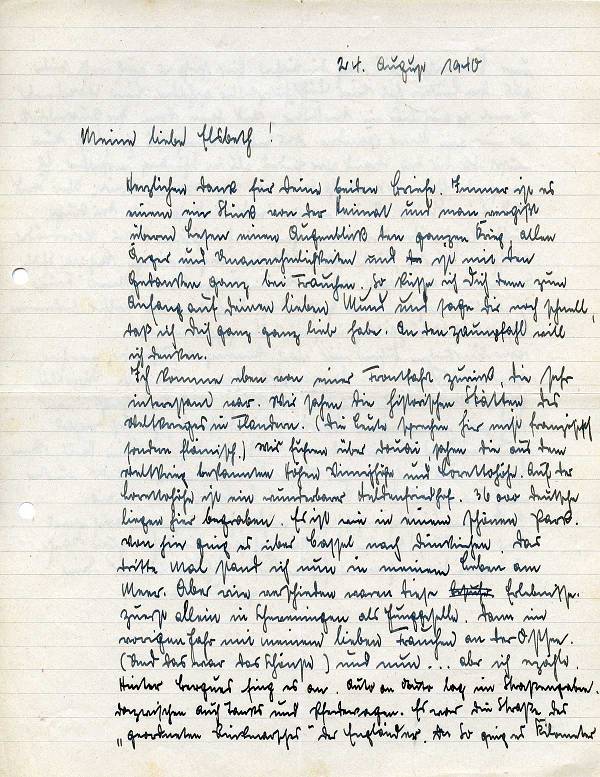 24. August 1940
Meine liebe Elsbeth!
Herzlichen Dank für Deine beiden Briefe. Immer ist es
einem ein Stück von der Heimat und man vergißt
überm Lesen einen Augenblick den ganzen Krieg, allen
Ärger und Unannehmlichkeiten und ist mit den
Gedanken ganz bei Frauchen. So küsse ich Dich denn zum
Anfang auf Deinen lieben Mund und sage Dir noch schnell,
daß ich Dich ganz ganz lieb habe. An den will
ich denken.
Ich komme eben von einer Frontfahrt zurück, die sehr
interessant war. Wir sahen die historischen Stätten des
Weltkrieges in Flandern. (Die Leute sprechen hier nicht französisch
sondern flämisch.) Wir fuhren über Douai, sahen die aus dem
Weltkrieg bekannten Höhen Vimyhöhe und Lorettohöhe. Auf der
Lorettohöhe ist ein wunderbarer Heldenfriedhof. 36 000 Deutsche
liegen hier begraben. Es ist wie in einem schönen Park.
Von hier ging es über Cassel nach Dünkirchen. Das
dritte Mal stand ich nun in meinem Leben am
Meer. Aber wie verschieden waren diese Erlebnisse.
Zuerst allein in Scheveningen als Junggeselle. Dann im
vorigen Jahr mit meinem lieben Frauchen an der Ostsee.
(Und das war das Schönste) und nun... aber ich erzähle.
Hinter Bergues fing es an. Auto an Auto lag im Straßengraben.
Dazwischen auch Tanks und Pferdewagen. Es war die Straße des
„geordneten Rückmarsches" der Engländer. So ging es Kilometer